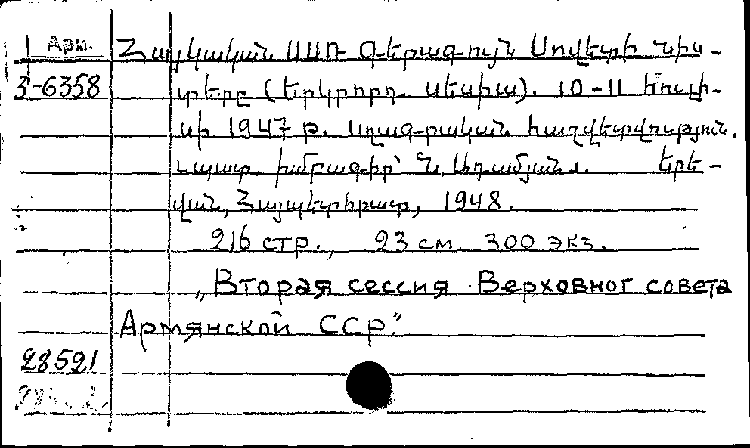 Арм.
3-6358
Հայկական ՍՍՌ Գերագույն Սովետի նիս-
տերը (Երկրորդ սեսիա). 10-11 հուլի-
սի 1947 թ. Սղագրական հաշվետվություն.
պատ. խմբագիր՝ Երե-
վան, Հայպետհրատ, 1948.
216 стр., 23 см 300 экз.
„Вторая сессия Верховног совета
Армянской ССР."
28521